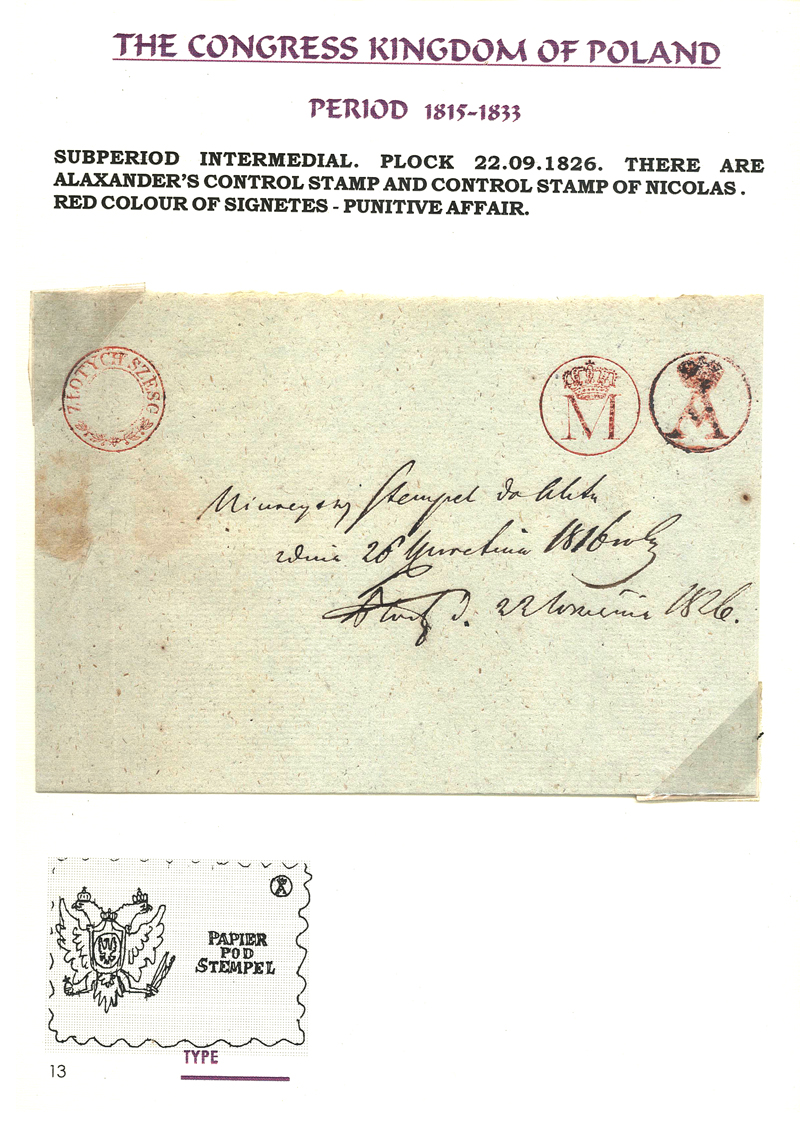 THE CONGRESS KINGDOM OF POLAND
PERIOD 1815-1833
SUBPERIOD INTERMEDIAL. PLOCK 22.09.1826. THERE ARE
ALAXANDER'S CONTROL STAMP AND CONTROL STAMP OF NICOLAS.
RED COLOUR OF SIGNETES - PUNITIVE AFFAIR.
ZŁOTYCH SZESC
M
A
Stempel do Aktu
z dnia 26 Kwietnia 1816
d. 22 1826.
A
PAPIER
POD
STEMPEL
TYPE
13